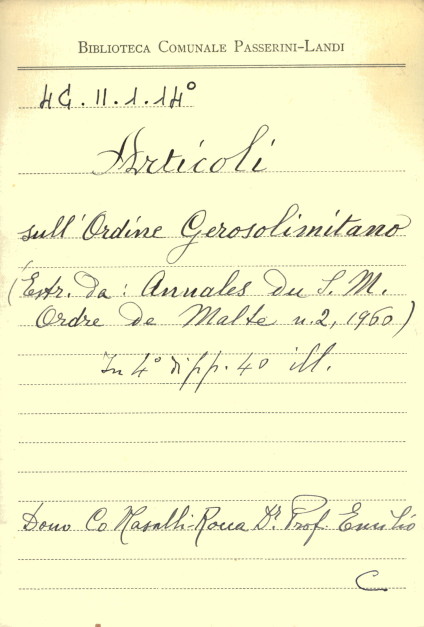 BIBLIOTECA COMUNALE PASSERINI-LANDI
4G.II.1.14°
Articoli
sull'Ordine Gerosolimitano
(Estr. da: Annales du S. M.
Ordre de Malte n.2, 1960)
In 4° di pp. 40 ill.
Dono Co Nasalli-Rocca Dr. Prof. Emilio
C